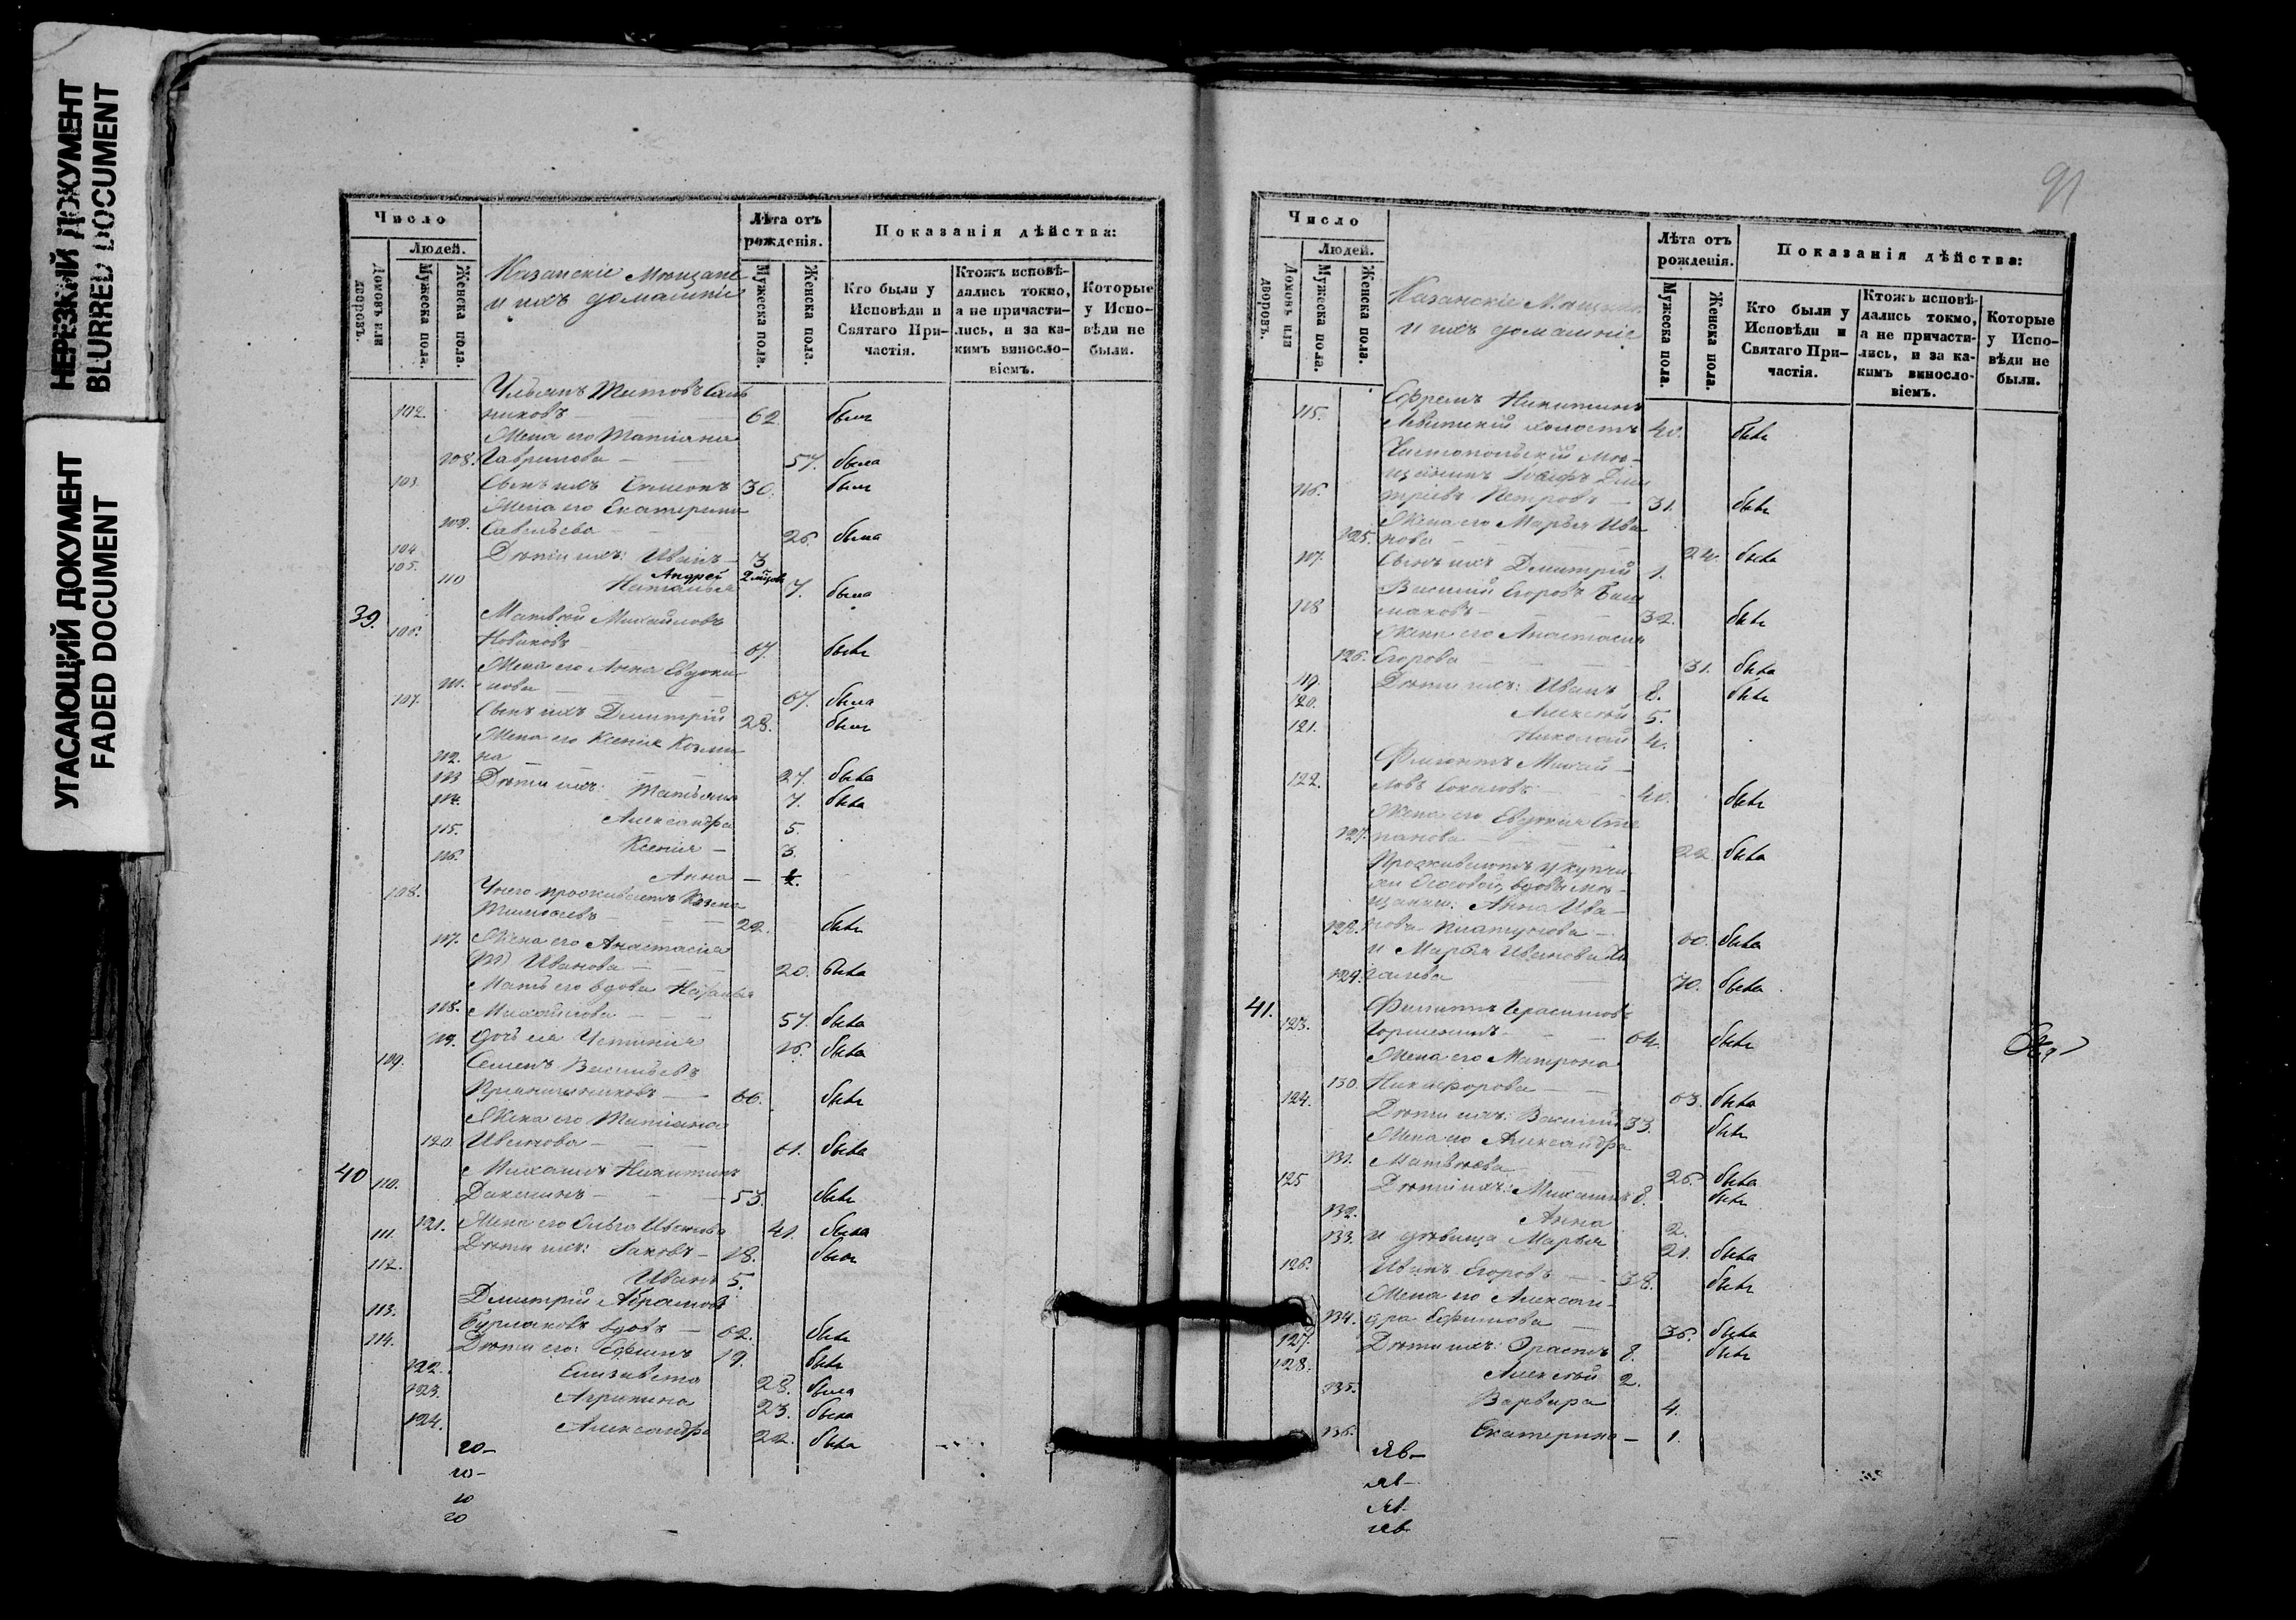 НЕРЕЗКИЙ ДОКУМЕНТ
BLURRED DOCUMENT
УГАСАЮЩИЙ ДОКУМЕНТ
FADED DOCUMENT
Число
Людей.
Домовъ или дворовъ.
Мужеска пола.
Женска пола.
Казанскіе Мѣщане
и ихъ домашніе
Лѣта отъ рожденія.
Мужеска пола.
Женска пола.
Показанія дѣйства:
Кто были у Исповѣди и Святаго Причастія.
Ктожъ исповѣдались токмо, а не причастились, и за какимъ винословіемъ.
Которые у Исповѣди не были.
Ульянъ Титовъ
102. никовъ 62 былъ
Жена его Татіана
108. Гаврилова 57. была
103. Сынъ ихъ Симеонъ 30. былъ
Жена его Екатерина
109. Савельева 26. была
104 Дѣти ихъ: Иванъ 3
105. Андрей 2 мѣсяц
110 Наталья 7. была
39. Матвѣй Михайловъ
106. Новиковъ 67. былъ
Жена его Анна Евдоки-
111. мова 67. была
107. Сынъ ихъ Димитрій 28. былъ
Жена его Ксенія Козми-
112. на 27. была
113 Дѣти ихъ: Татьяна 7. была
114. Александра 5.
115. Ксенія 3.
116. Анна
108. У него проживаетъ Козма
Тимофеевъ 22. былъ
117. Жена его Анастасіа
Иванова 20. была
Мать его вдова Наталья
118. Михайлова 57. была
119. дочь ея Устинія 16. была
109. Семенъ Васильевъ
Пряничниковъ 66. былъ
Жена его Татіана
120. Иванова 61. была
40 Михаилъ Никитинъ
110. 53. былъ
121. Жена его Ольга Иванова 41. была
111. Дѣти ихъ: Іаковъ 18. былъ
112. Иванъ 5.
Димитрій Абрамовъ
113. Бурлаковъ вдовъ 62. былъ
114. Дѣти его: Ефимъ 19. былъ
122. Елизавета 28. была
123. Агрипина 23. была
124. Александра 22. была
го-
го-
го
го
91
Число
Людей.
Домовъ или дворовъ.
Мужеска пола.
Женска пола.
Казанскіе Мѣщане
и ихъ домашніе
Лѣта отъ рожденія.
Мужеска пола.
Женска пола.
Показанія дѣйства:
Кто были у Исповѣди и Святаго Причастія.
Ктожъ исповѣдались токмо, а не причастились, и за какимъ винословіемъ.
Которые у Исповѣди не были.
Ефремъ Никитинъ
115. Левитскій холостъ 40. былъ
Чистопольскій Мѣ-
щанинъ Іосифъ Дми-
116. тріевъ Петровъ 31. былъ
Жена его Марья Ива-
125. нова 24. была
117. Сынъ ихъ Димитрій 1.
Василий Егоровъ Баш-
118 маковъ 32. былъ
Жена его Анастасія
126. Егорова 31. была
119. Дѣти ихъ: Иванъ 8. былъ
120. Алексѣй 5.
121. Николай 4.
Филиппъ Михай-
122. ловъ Соколовъ 40. былъ
Жена его Евдокія Сте-
127. панова 22 была
Проживаютъ у купчи-
хи вдовы мѣ-
щанки: Анна Ива-
128. нова 60. была
и Марья Иванова
129. 70. была
41. Филиппъ Герасимовъ
123. 64. былъ
Жена его Матрона
130. Никифорова 63. была
124. Дѣти ихъ: Василій 33. былъ
Жена его Александра
131. Матвѣева 26. была
125 Дѣти ихъ: Михаилъ 8. былъ
132. Анна 2.
133. и дѣвица Марья 21. была
126. Иванъ Егоровъ 38. былъ
Жена его Алексан-
134. дра Ефимова 36. была
127. Дѣти ихъ: Эрастъ 8. былъ
128. Алексѣй 2.
135. Варвара 4.
136. Екатерина 1.
яв-
яв-
яв-
яв